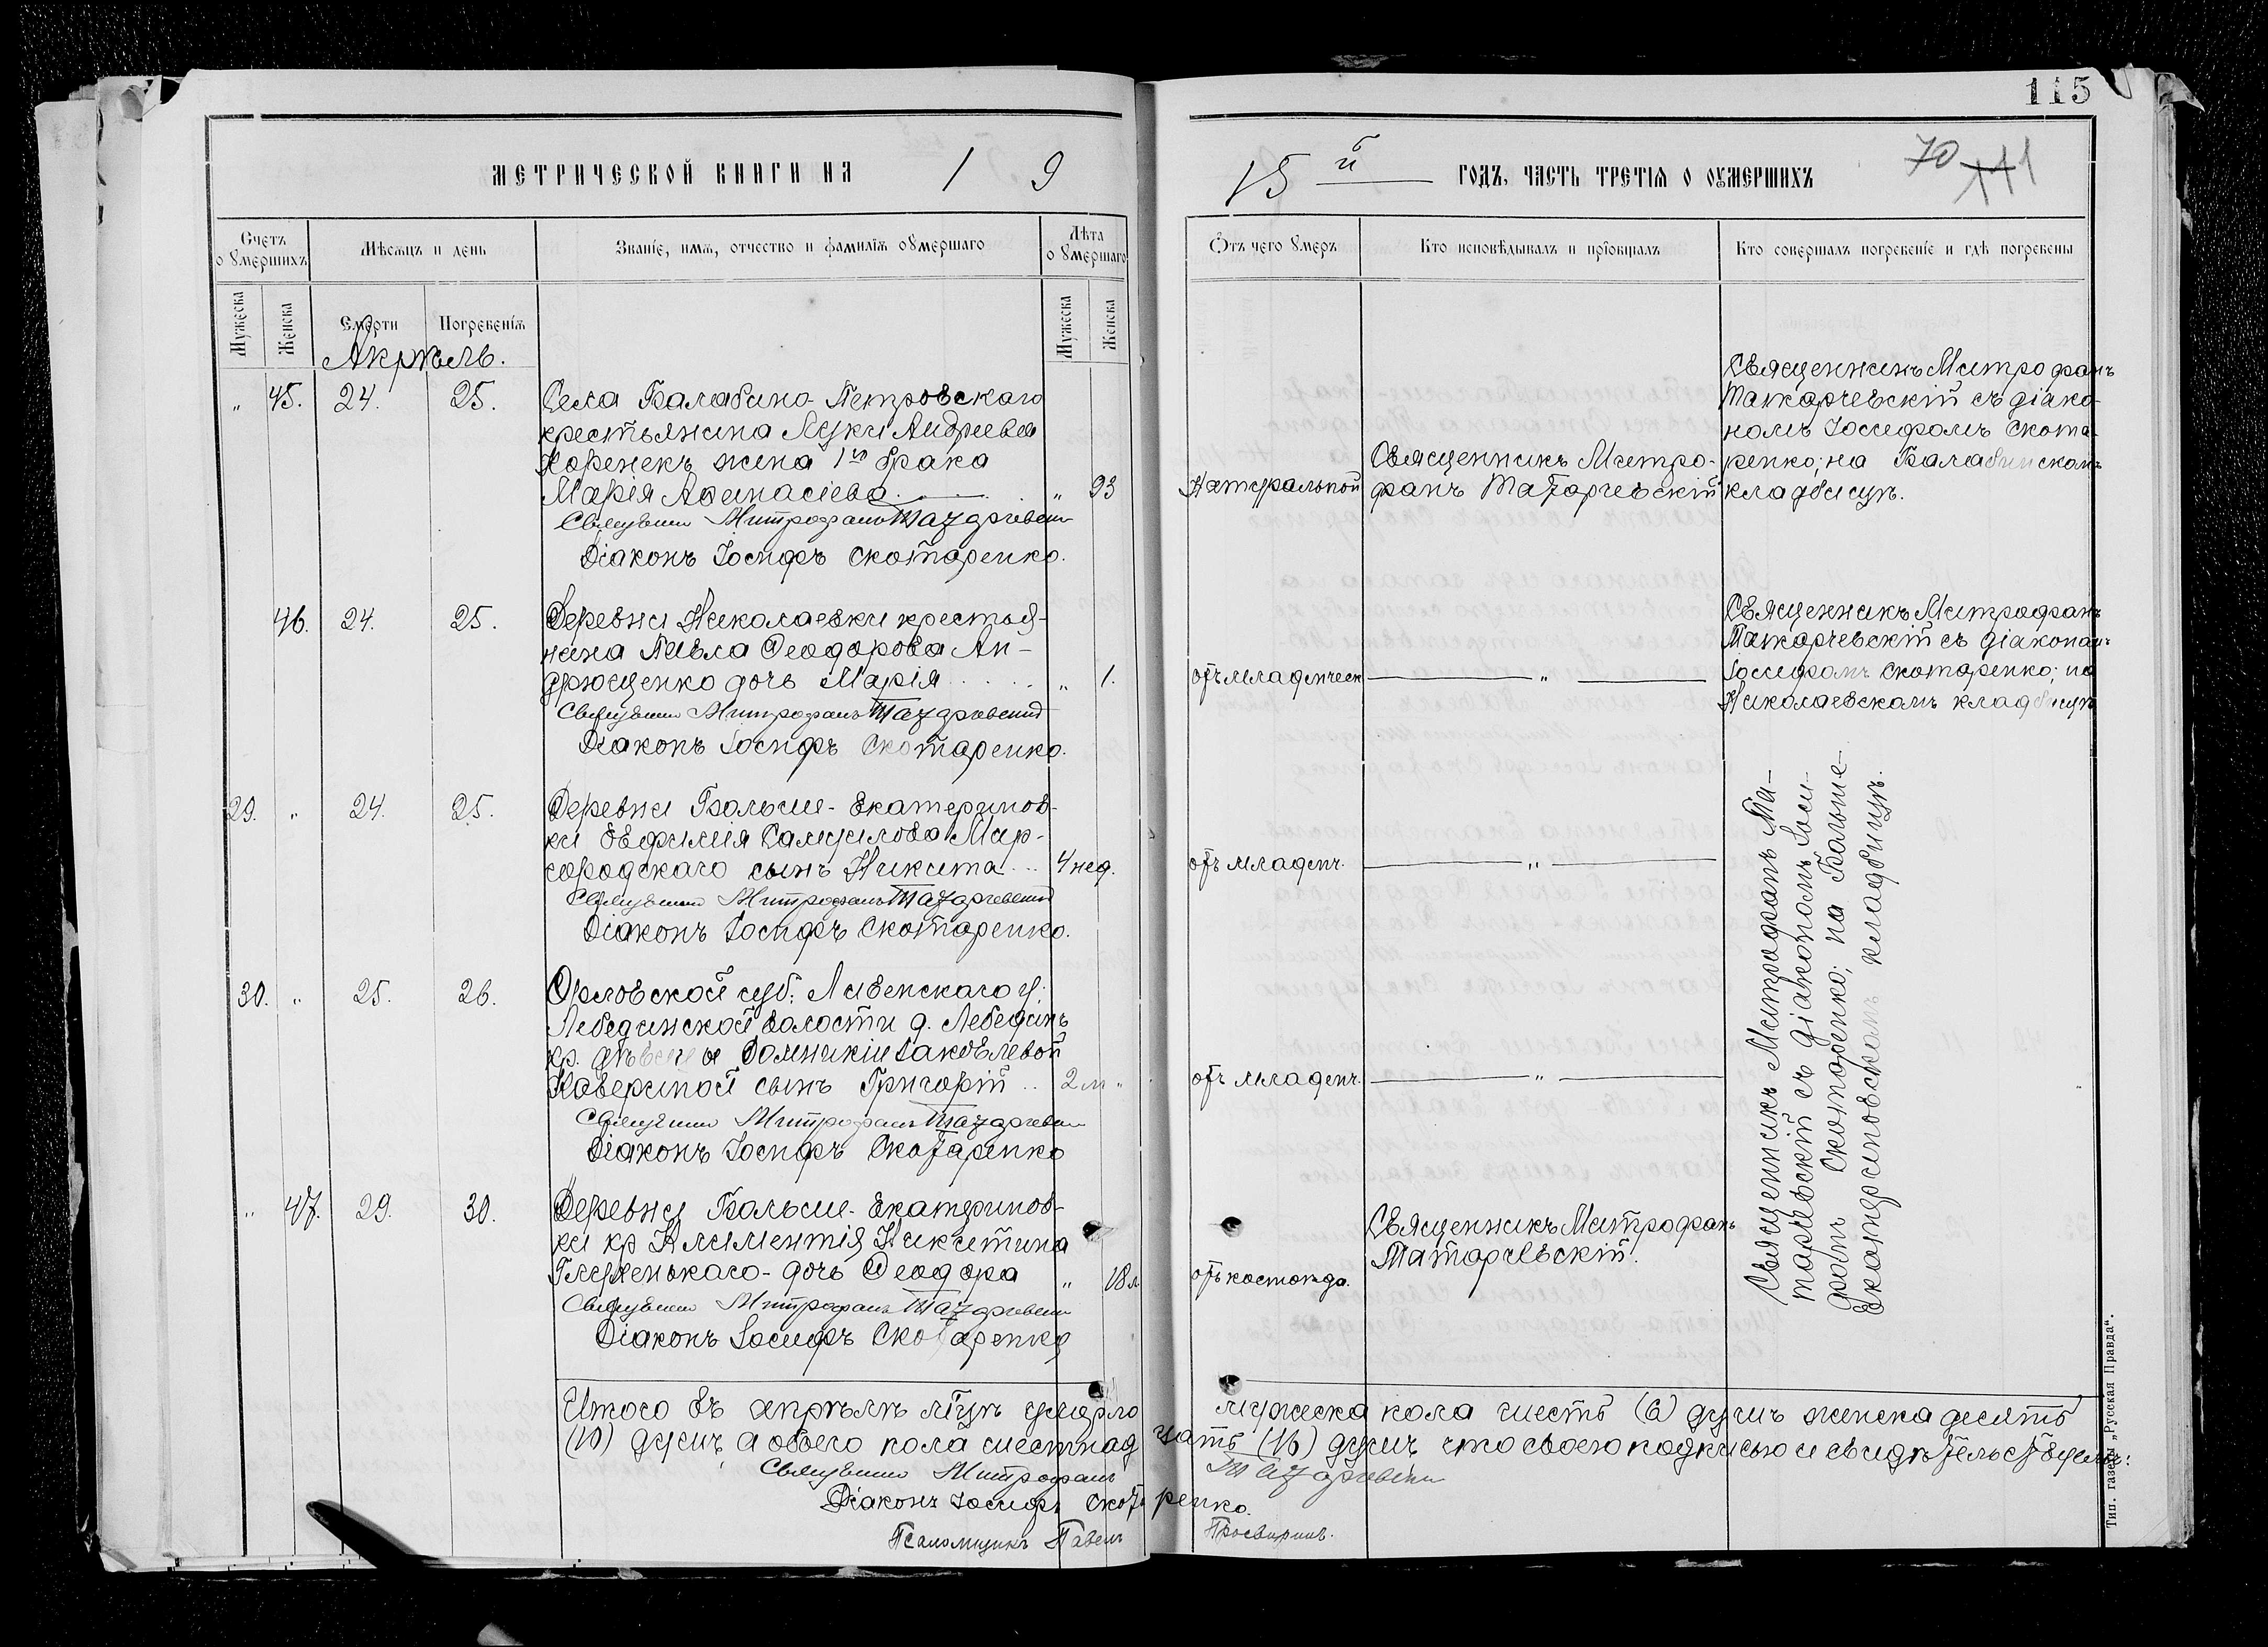 115
70 111
МЕТРИЧЕСКОЙ КНИГИ НА 1 9
15 й ГОДЪ, ЧАСТЬ ТРЕТІЯ О ОУМЕРШИХЪ
Счетъ о умершихъ
Мѣсяцъ и день
Званіе, имя, отчество и фамилія оумершаго
Лѣта оумершаго
Отъ чего умеръ
Кто исповѣдывалъ и пріобщалъ
Кто совершалъ погребеніе и гдѣ погребены
Мужеска
Женска
Смерти
Погребенія
Мужеска
Женска
Апрѣль.
„ 45. 24. 25.
Села Балабино-Петровскаго
крестьянина Луки Андреева
Коренекъ жена 1го брака
Марія Аѳанасіева „ 93
Священникъ Митрофанъ Татарчевскій
Діаконъ Іосифъ Скотаренко.
Натуральной
Священникъ Митро-
фанъ Татарчевскій
Священникъ Митрофанъ
Татарчевскій съ діако-
номъ Іосифомъ Скота-
ренко; на Балабинскомъ
кладбищѣ.
46. 24. 25.
Деревни Николаевки крестья-
нина Павла Ѳеодорова Ан-
дрющенко дочь Марія „ 1.
Священникъ Митрофанъ Татарчевскій
Діаконъ Іосифъ Скотаренко.
отъ младенческ
„
Священникъ Митрофанъ
Татарчевскій съ діакономъ
Іосифомъ Скотаренко; на
Николаевскомъ кладбищѣ
29. „ 24. 25.
Деревни Больше-Екатеринов-
ки Евфимія Самуилова Мир-
городскаго сынъ Никита 4 нед.
Священникъ Митрофанъ Татарчевскій
Діаконъ Іосифъ Скотаренко.
отъ младенч.
„
Священникъ Митрофанъ Та-
тарчевскій съ діакономъ Іоси-
фомъ Скотаренко; на Больше-
Екатериновскомъ кладбищѣ.
30. „ 25. 26.
Орловской губ: Ливенскаго у:
Лебединской волости д. Лебедин
кр. дѣвицы Домникіи Яковлевой
Кавериной сынъ Григорій 2 м „
Священникъ Митрофанъ Татарчевскій
Діаконъ Іосифъ Скотаренко
отъ младенч.
„
„ 47. 29. 30.
Деревни Больше-Екатеринов-
ки кр Климентія Никитина
Глуженькаго - дочь Ѳеодора „ 18 л
Священникъ Митрофанъ Татарчевскій
Діаконъ Іосифъ Скотаренко
отъ костоѣда.
Священникъ Митрофанъ
Татарчевскій.
Итого въ апрѣлѣ мѣцѣ умерло мужеска пола шесть (6) душъ женска десять
(10) душъ, а обоего пола шестнадцать (16) душъ что своею подписью и свидѣтельствуемъ:
Священникъ Митрофанъ Татарчевскій
Діаконъ Іосифъ Скотаренко.
Псаломщикъ Павелъ Просвиринъ.
Тип. газеты „Русская Правда“.